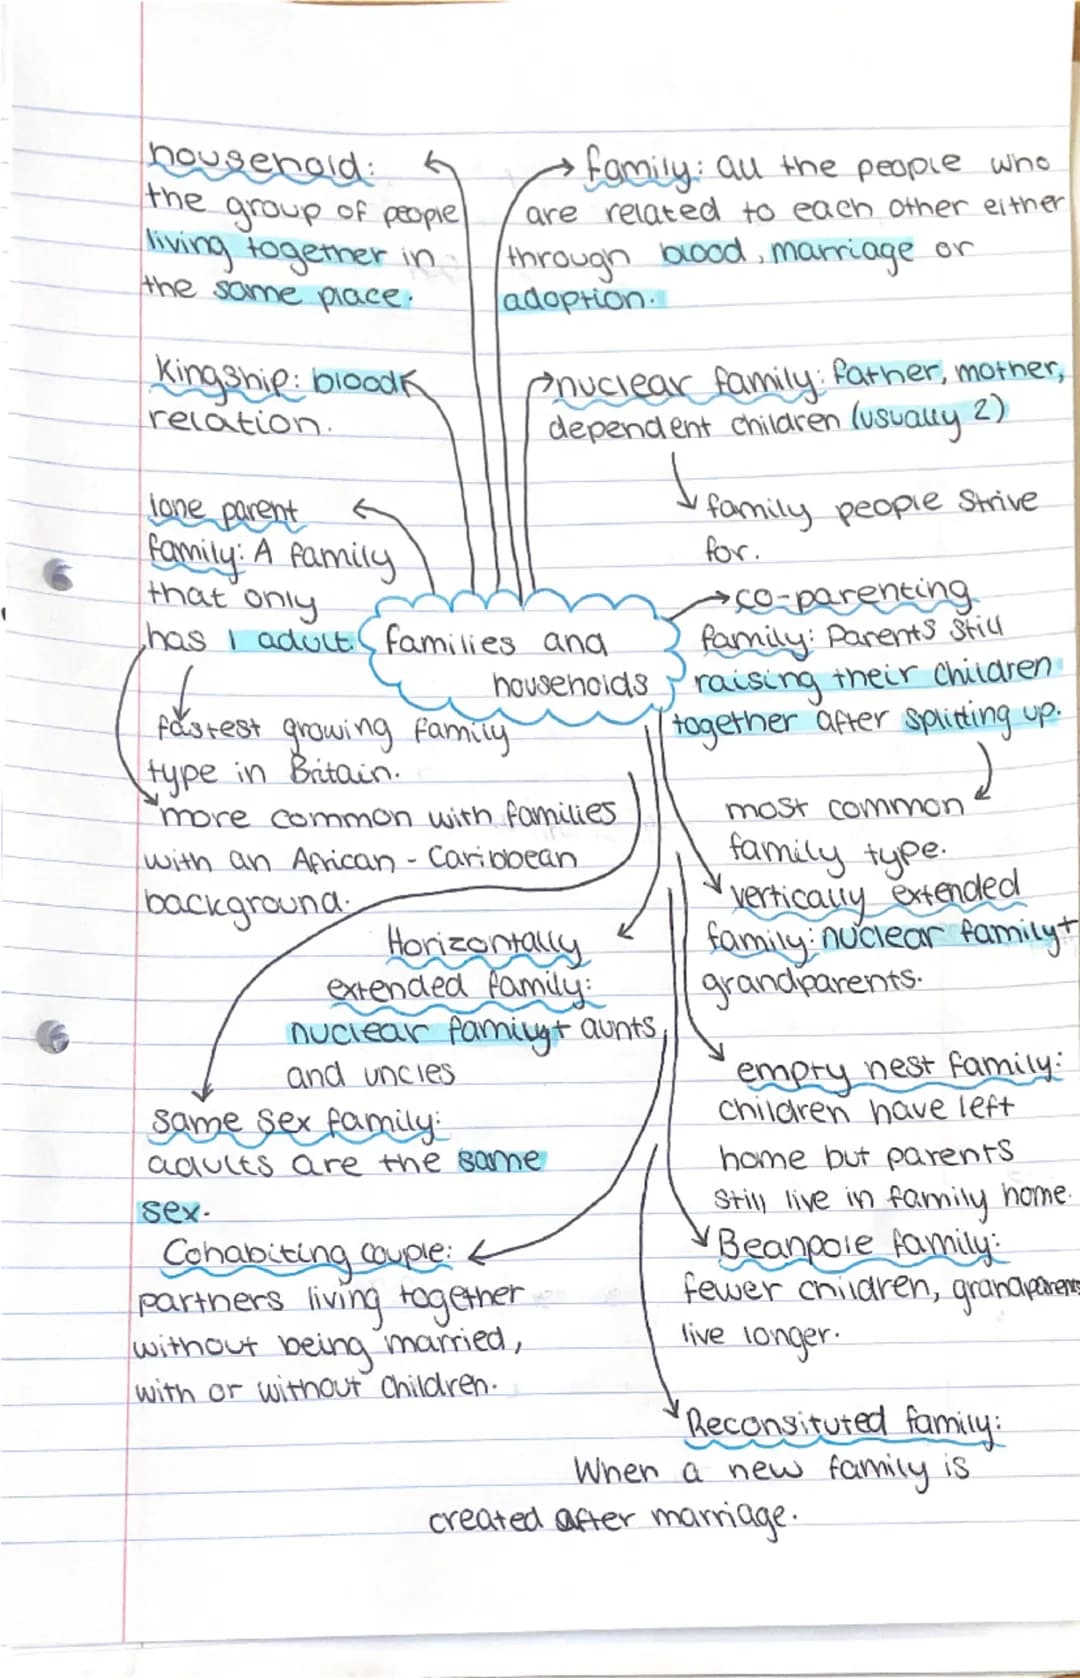 household:
the group of people
living together in
the same place.
family: all the people who
are related to each other either
through blood, marriage or
adoption.
Kingship: blood
relation.
nuclear family: father, mother,
dependent children (usually 2)
family people strive
for.
lone parent
family: A family
that only
has 1 adult.
fastest growing family
type in Britain.
more common with families
with an African - Caribbean
background.
families and
households
co-parenting
family: Parents still
raising their children
together after splitting up.
most common
family type.
vertically extended
family: nuclear family+
grandparents.
Horizontally
extended family:
nuclear family+ aunts
and uncles
empty nest family:
children have left
home but parents
still live in family home.
same sex family:
adults are the same
sex.
Beanpole family:
fewer children, grandparents
live longer.
Cohabiting couple:
partners living together
without being married,
with or without children.
Reconsituted family:
When a new family is
created after marriage.